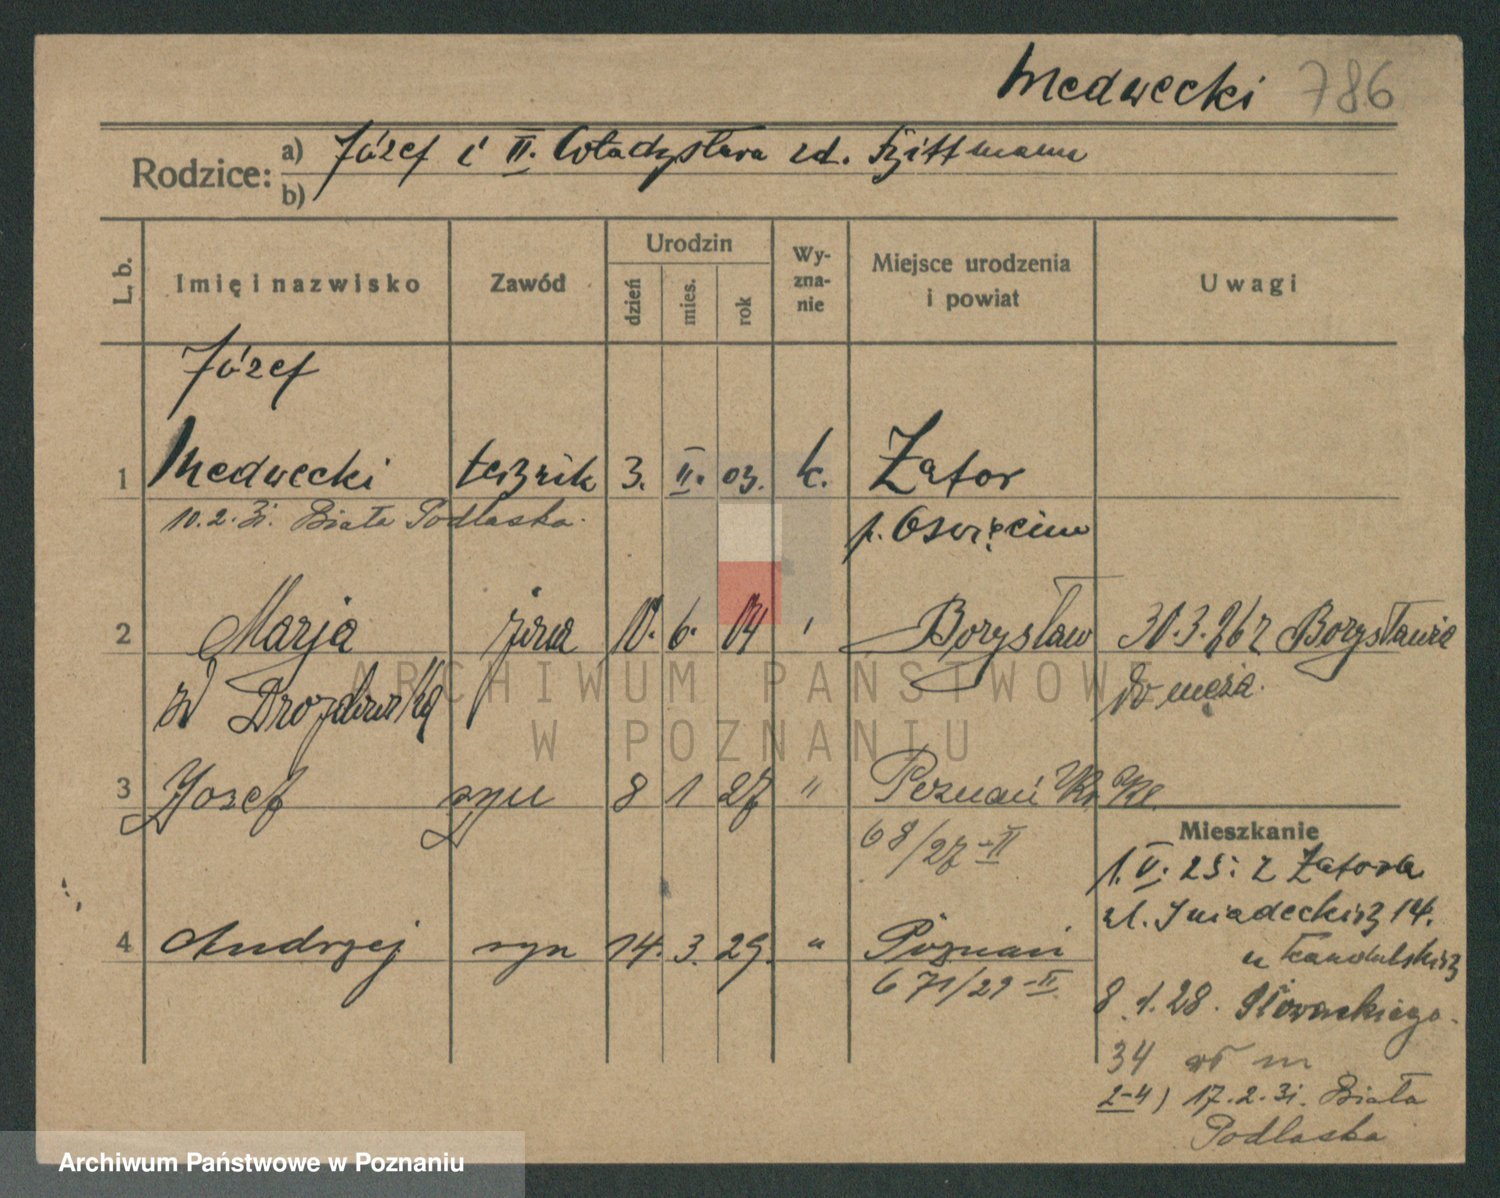 Medwecki 786
Rodzice: a) Józef i II. Władysława zd.
b)
L. b. Imię i nazwisko Zawód Urodzin dzień mies. rok Wyznanie Miejsce urodzenia i powiat Uwagi
Józef
1 Medwecki 3. II. 03. k. Zator
10.2.31. Biała Podlaska. p. Oswięcim
2 Marja żona 10. 6. 04 Borysław 30.3.26 z Borysławia
zd do męża.
3 Jozef syn 8 1 27 " Poznań
68/27-II
Mieszkanie
1. V. 25: z Zatora
ul. Sniadeckich 14.
4 Andrzej syn 14. 3. 29. " Poznań
u
671/29-II
8.1.28. Słowackiego
34 wł m
2-4) 17.2.31. Biała
Podlaska
ARCHIWUM PAŃSTWOWE
W POZNANIU
Archiwum Państwowe w Poznaniu